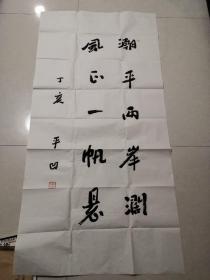 潮平两岸濶
风正一帆悬
丁亥 平凹